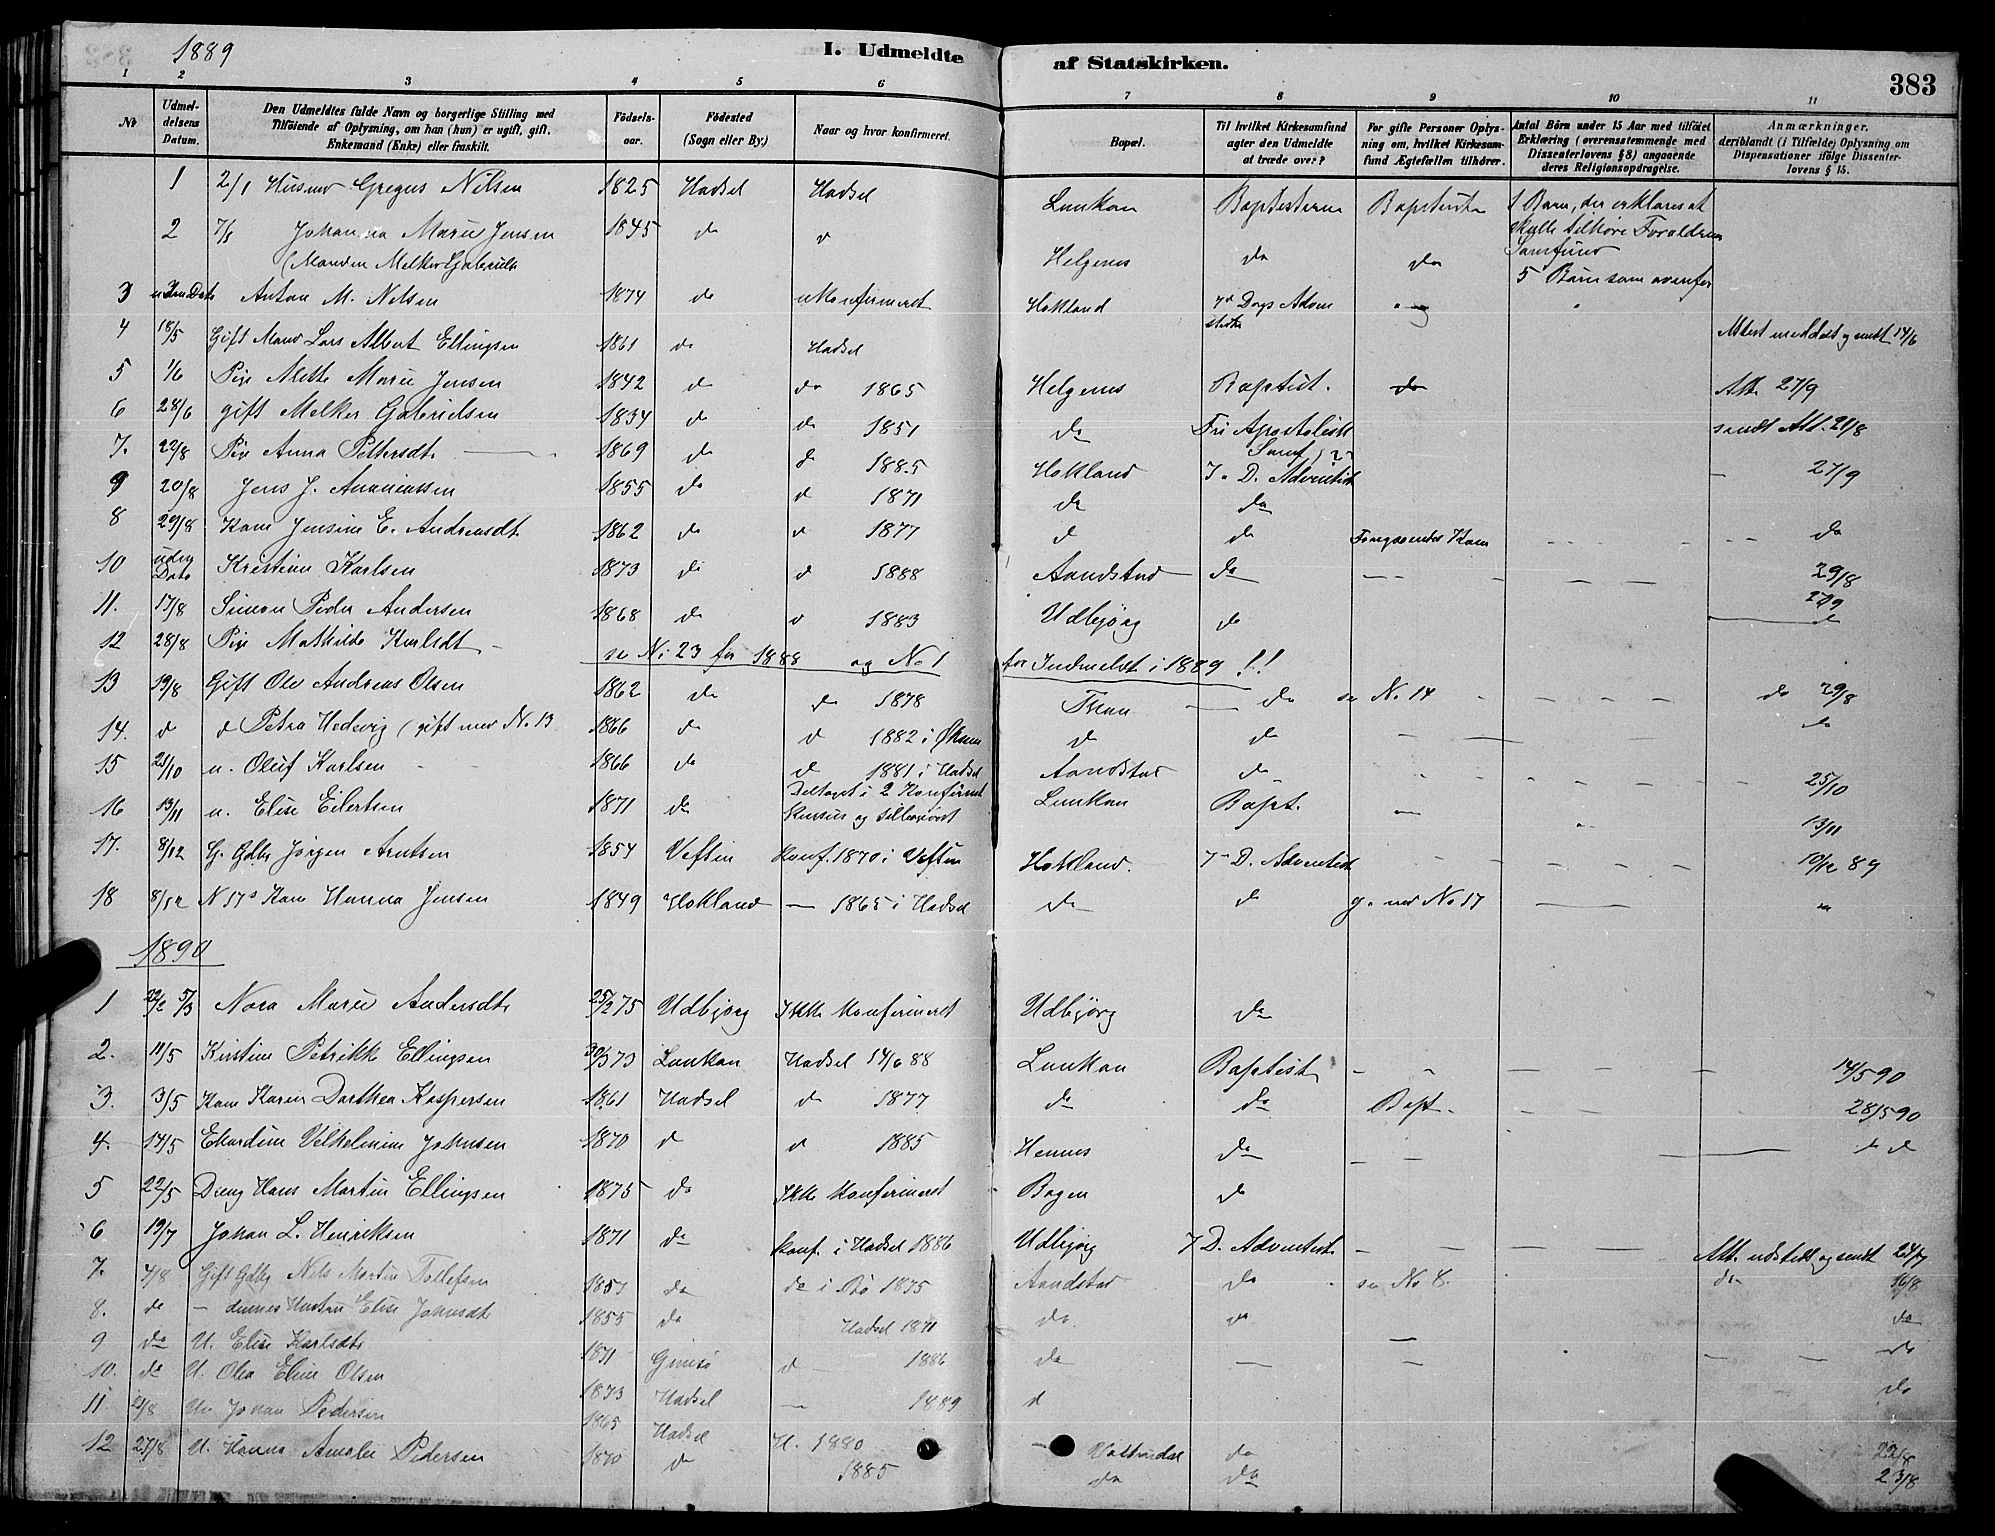 1889
I. Udmeldte af Statskirken.
383
1 2 3 4 5 6 7 8 9 10 11
Nr
Udmeldelsens Datum.
Den Udmeldtes fulde Navn og borgerlige Stilling med Tilföiende af Oplysning, om han (hun) er ugift, gift, Enkemand (Enke) eller fraskilt.
Födselsaar.
Födested (Sogn eller By.)
Naar og hvor konfirmeret.
Bopæl.
Til hvilket Kirkesamfund agter den Udmeldte at træde over?
For gifte Personer Oplysning om, hvilket Kirkesamfund Ægtefællen tilhörer.
Antal Börn under 15 Aar med tilföiet Erklæring (overensstemmende med Dissenterlovens § 8) angaaende deres Religionsopdragelse.
Anmærkninger, deriblandt (i Tilfælde) Oplysning om Dispensationer ifölge Dissenterlovens § 15.
1 2/1 Husmd Gregus Nilsen 1825 Hadsel Hadsel Lunkan Baptisterne Baptist 1 Barn, der erklæres at skulle tilhøre Forældrenes Samfund
2 7/3 Johanna Marie Jensen (Manden Melker Gabriels 1845 do d Helgenes do do 5 Børn som ovenfor
3 uden Dato Anton M. Nelsen 1874 do ukonfirmeret Hokland 7d Dags Adventister
4 18/5 Gift Mand Lars Albert Ellingsen 1861 do Hadsel Attest meddelt og sendt 14/6
5 1/6 Pige Alette Marie Jensen 1842 do do 1865 Helgenes Baptist. do Att. 27/9
6 28/6 gift Melker Gabrielsen 1834 do do 1851 do Fri Apostolisk Samf. sendt Att. 21/8
7. 22/8 Pige Anna Pettersdt 1869 do do 1885 Hokland 7. D. Adventist 27/9
9 20/8 Jens J. Ananiassen 1855 do d 1871 do do
8 29/8 Kone Jensine E. Andreasdt 1862 do d 1877 d do Foregaaendes Kone do
10 uden Dato Kristian Karlsen 1873 do d 1888 Aandstad do 29/8
11. 17/8 Simon Peder Andersen 1868 do d 1883 Udbjörg do 27/9
12 28/8 Pige Mathilde Karlsdt se No 23 for 1888 og No 1 for Indmeldte i 1889 !! do
13 19/8 Gift Ole Andreas Olsen 1862 do do 1878 do se No 14 do 29/8
14. d d Petra Hedevig (gift med No. 13 1866 do d 1882 i Øksnes d do do
15 25/10 u. Oluf Karlsen 1866 do d 1881 i Hadsel Aandstad do 25/10
16 13/11 u. Elise Eilertsen 1871 do Deltaget i 2 Konfirmt Kursus og Lunkan Bapt. 13/11
17. 8/12 G. Gdbr Jörgen Arntsen 1854 Vefsen Konf. 1870 i Vefsen Hokland. 7. D. Adventist 10/12 89
18 8/12 N 17s Kone Hanna Jensen 1849 Hokland — 1865 i Hadsel do d g. med No 17
1890
1 22/2 5/3 Nora Marie Andersdt 25/2 75 Udbjörg Ikke Konfirmeret Udbjörg do
2. 11/5 Kirstine Petrikke Ellingsen 30/3 73 Lunkan Hadsel 14/6 88 Lunkan Baptist 14/5 90
3. 3/5 Kone Karen Dorthea Kaspersen 1861 Hadsel d 1877 do do Bapt. 28/5 90
4. 14/5 Ekardine Vilhelmine Johnsen 1870 d d 1885 Hennes do do
5 22/5 Dreng Hans Martin Ellingsen 1875 do Ikke Konfirmeret Bogen do
6 19/7 Johan L. Henriksen 1871 do Konf. i Hadsel 1886 Udbjörg 7 D. Adventist Att. udstedt og sendt 24/7
7. 4/8 Gift Gdbg Nils Martin Tollefsen 1857 do do i Bø 1875 Aandstad do se No 8. do 16/8
8. do — dennes Hustru Elise Johnsdt 1855 do Hadsel 1871 do. do do
9 do U. Elise Karlsdt 1871 Gimsö d 1886 do do
10. do U. Olea Eline Olsen 1873 Hadsel — 1889 d do
11 21/8 Um Johan Pedersen 1865 Hadsel H. 1880 do 22/8
12 27/8 U. Hanna Amalie Pedersen 1870 d 1885 do do 23/8